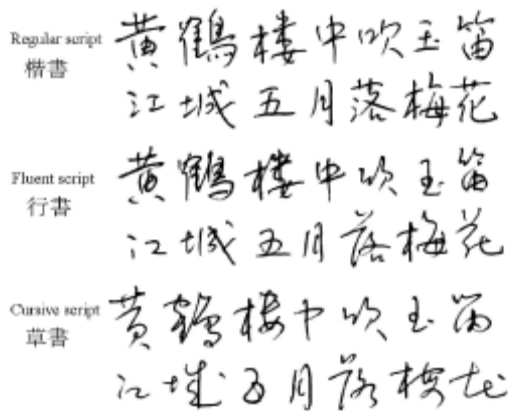 Regular script 黄鶴楼中吹玉笛
楷書
江城五月落梅花
Fluent script 黄鶴楼中吹玉笛
行書
江城五月落梅花
Cursive script 黄鶴楼中吹玉笛
草書
江城五月落梅花